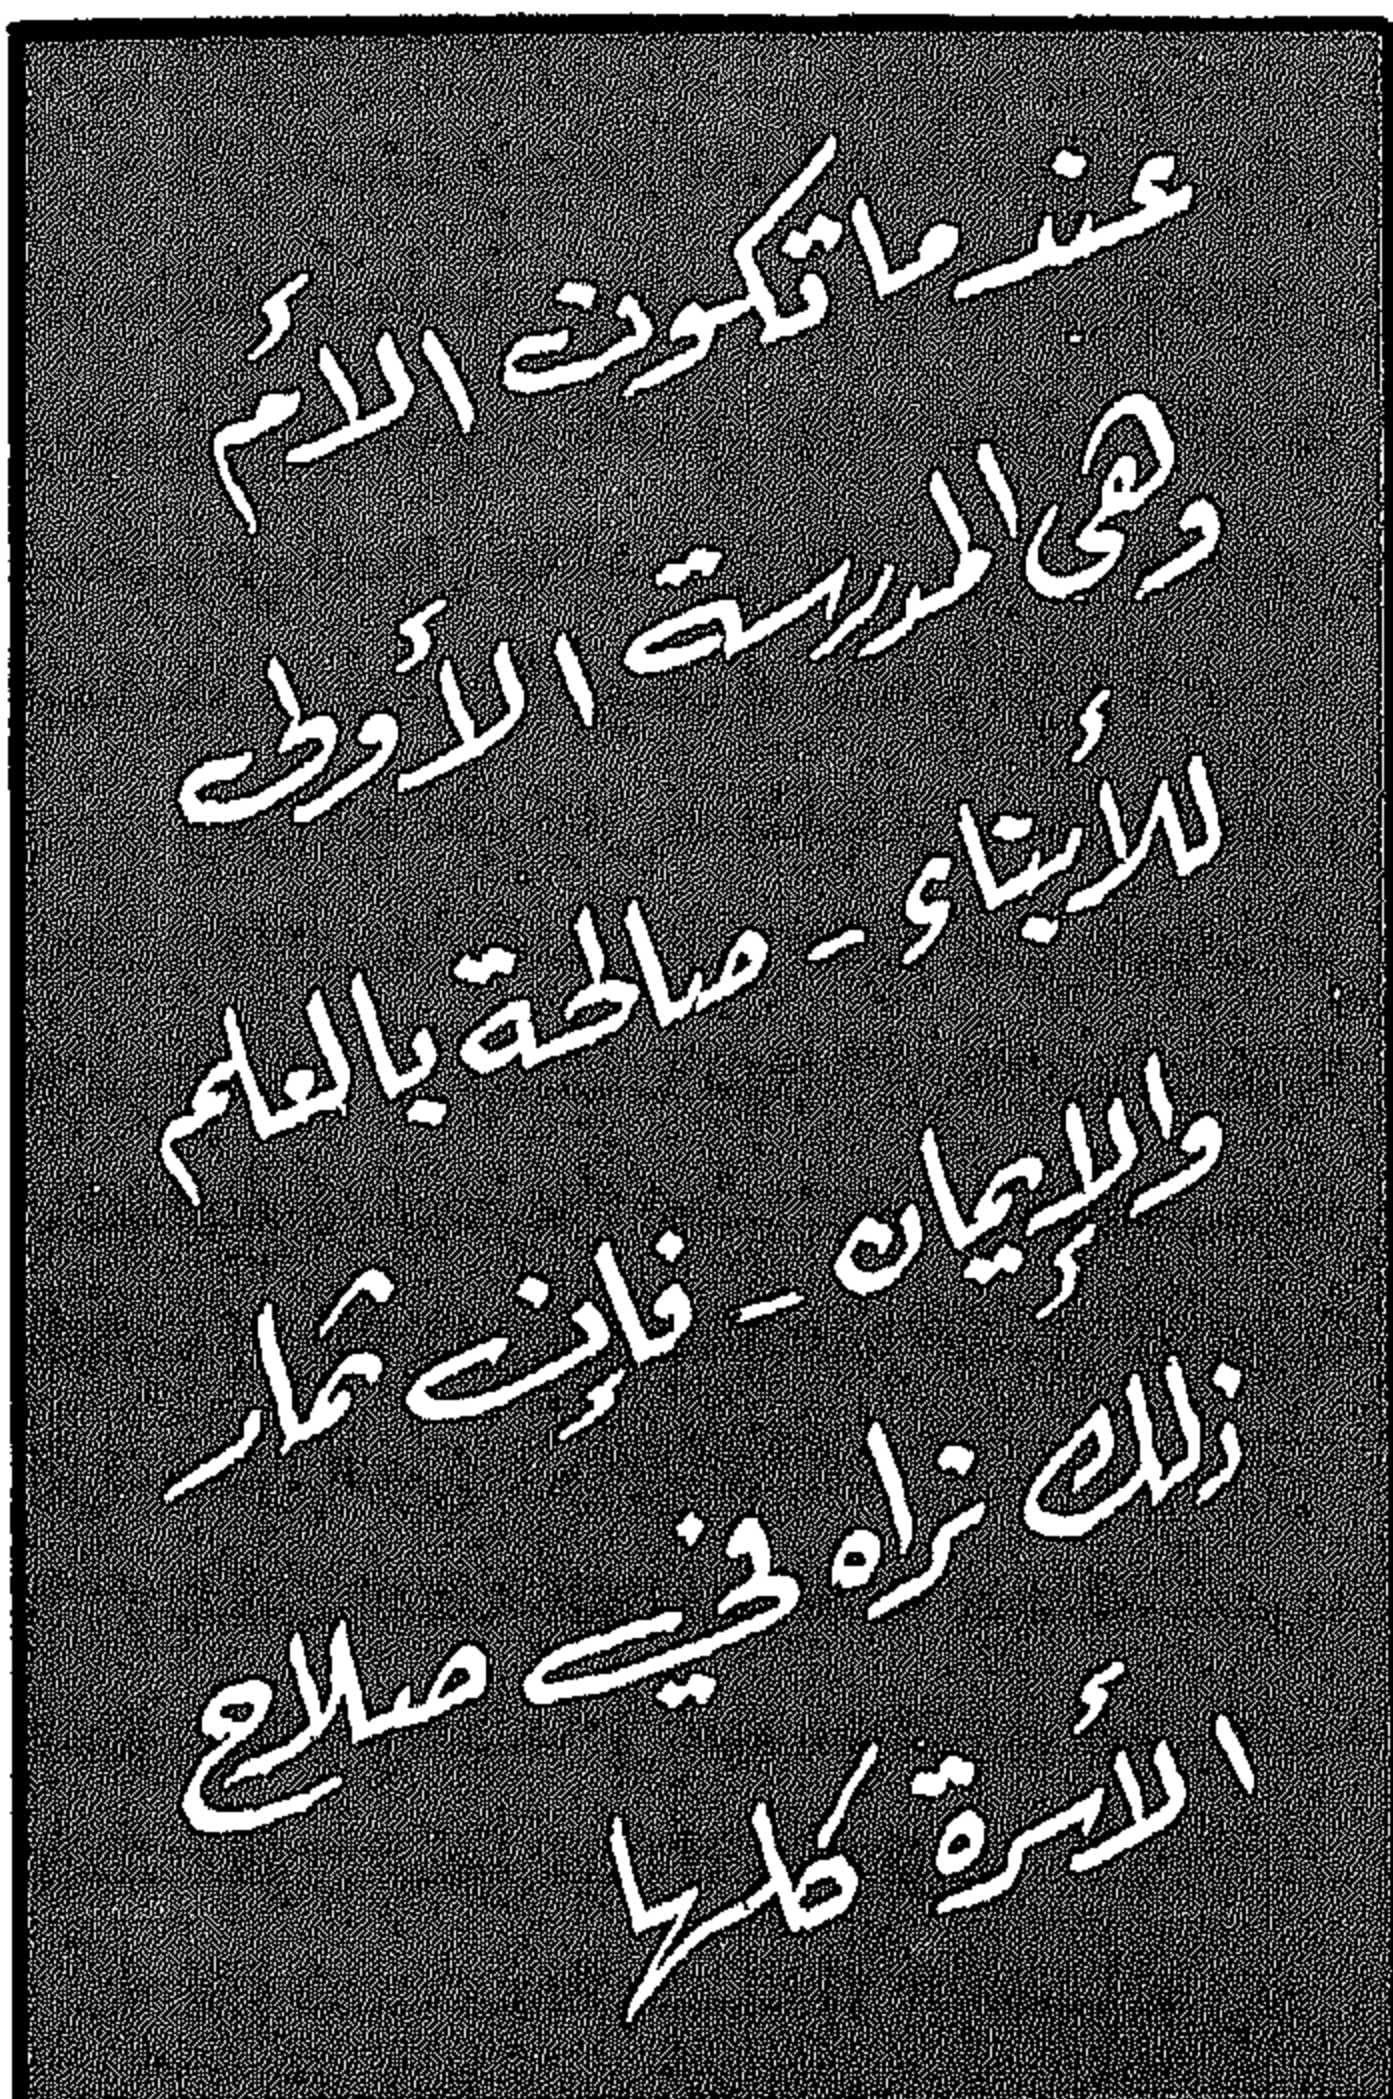 عندما تكون الأم
وهى المدرسة الأولى
للأبناء - صالحة بالعلم
والإيمان - فإن ثمار
ذلك نراه في صلاح
الأسرة كلها